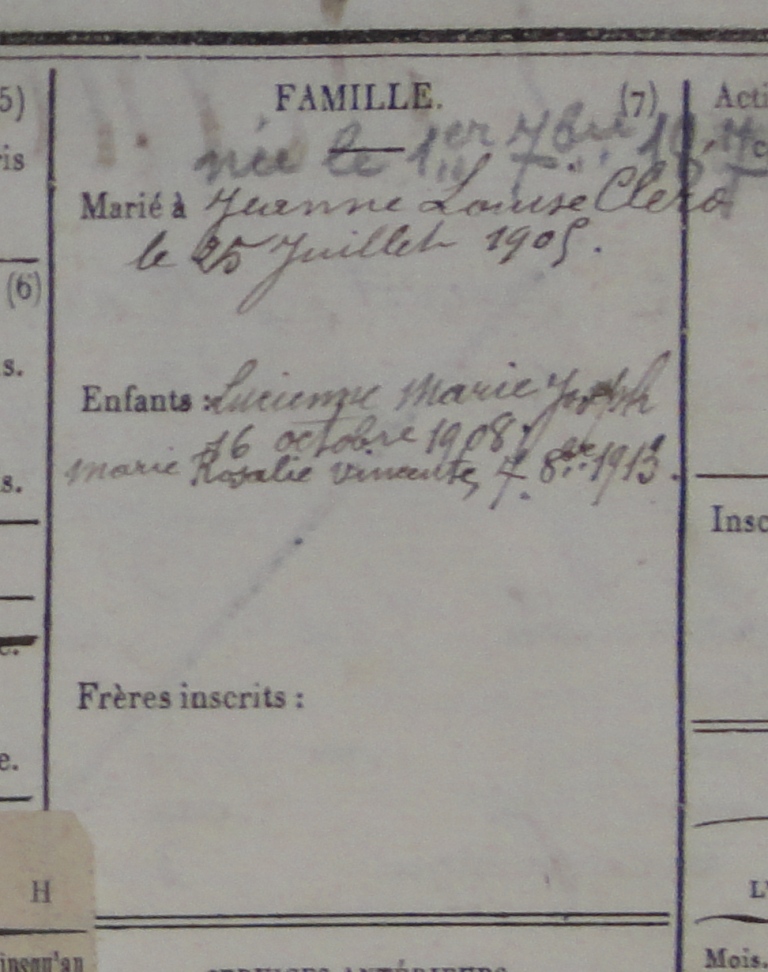 5)
FAMILLE. (7)
Acti
ris
née le 1er 7bre 18
Marié à Jeanne Louise Clero
le 25 Juillet 1905.
(6)
s.
Enfants : Lucienne Marie Joseph
16 octobre 1908
marie Rosalie vincente, 7 8bre 1913.
s.
Insc
Frères inscrits :
e.
H
L'
jusqu'au
SERVICES ANTÉRIEURS
Mois.